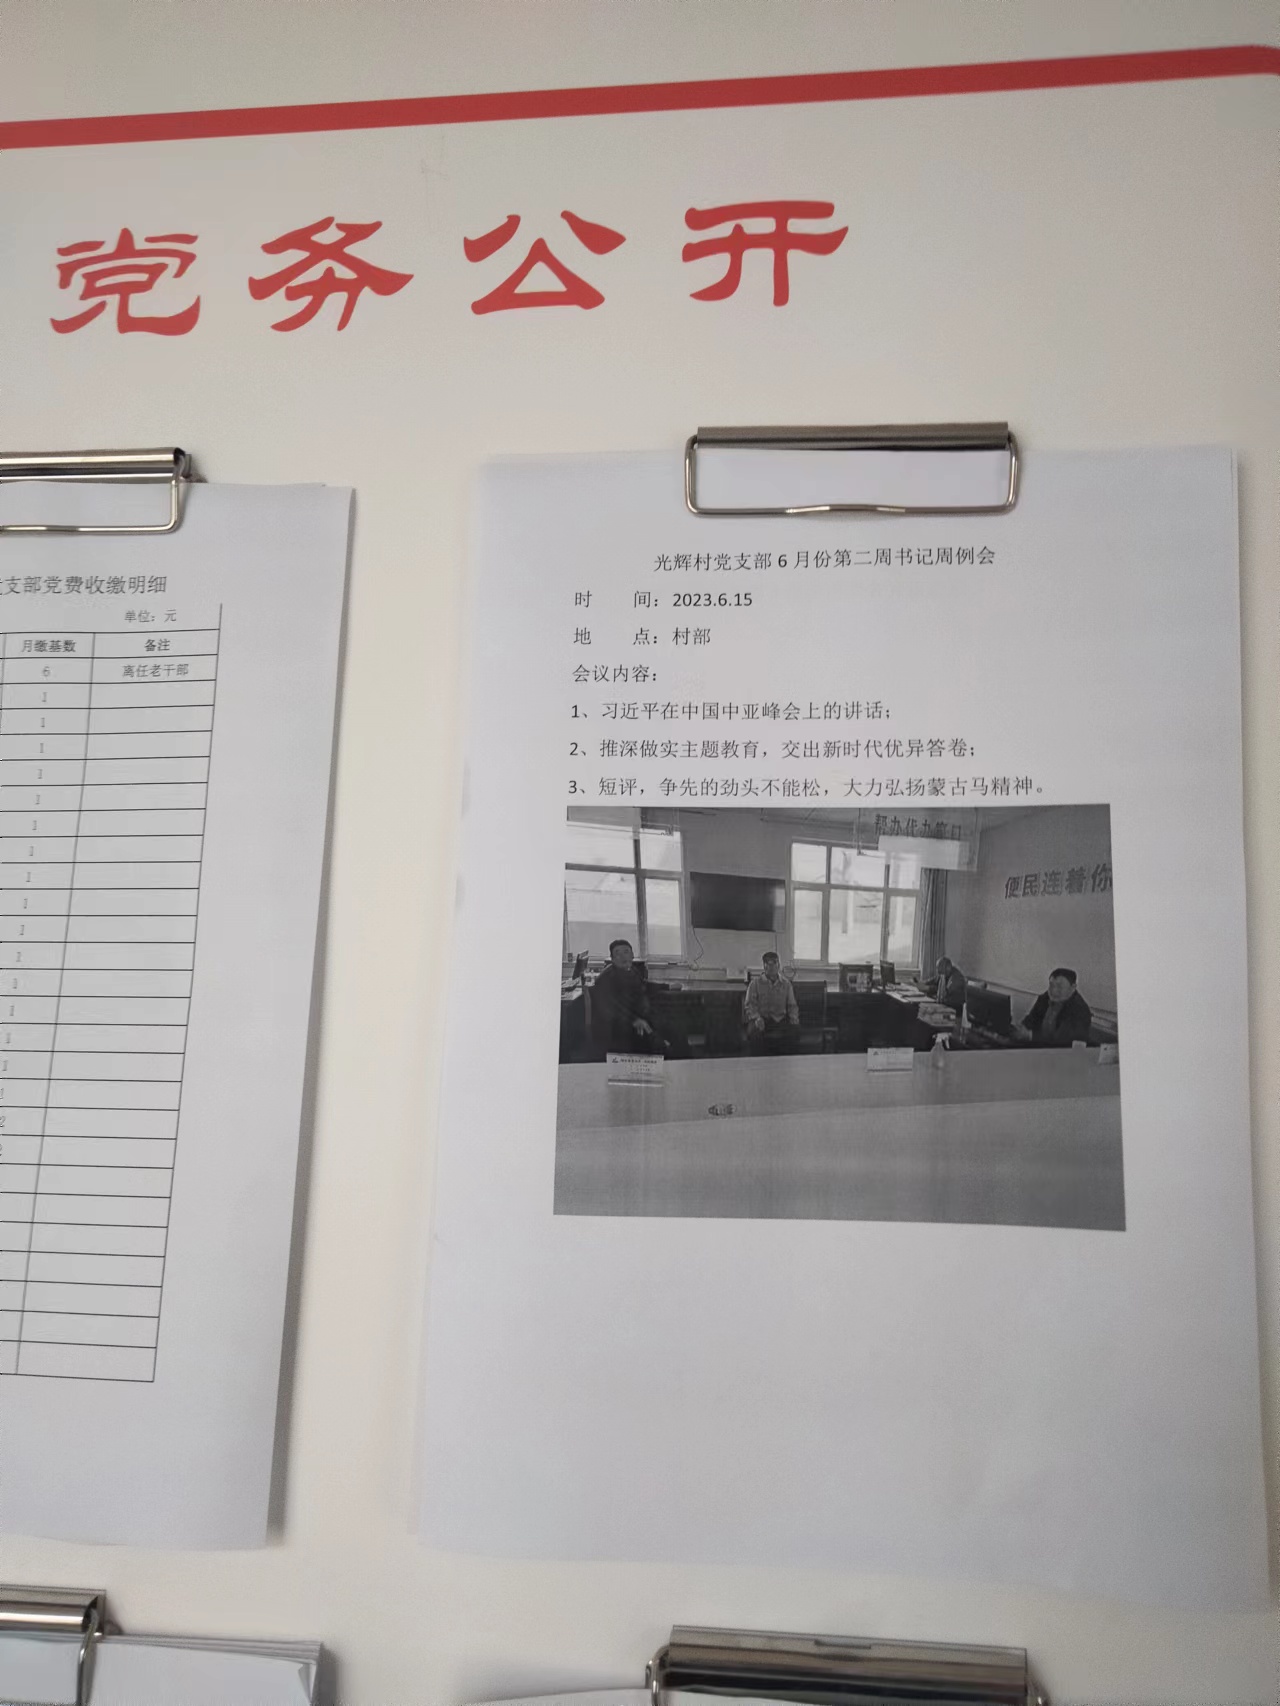 党务公开
支部党费收缴明细
单位：元
月缴基数 备注
6 离任老干部
1
1
1
1
1
1
1
1
1
1
1
1
1
1
1
1
2
光辉村党支部6月份第二周书记周例会
时 间：2023.6.15
地 点：村部
会议内容：
1、习近平在中国中亚峰会上的讲话；
2、推深做实主题教育，交出新时代优异答卷；
3、短评，争先的劲头不能松，大力弘扬蒙古马精神。
帮办代办窗口
便民连着你